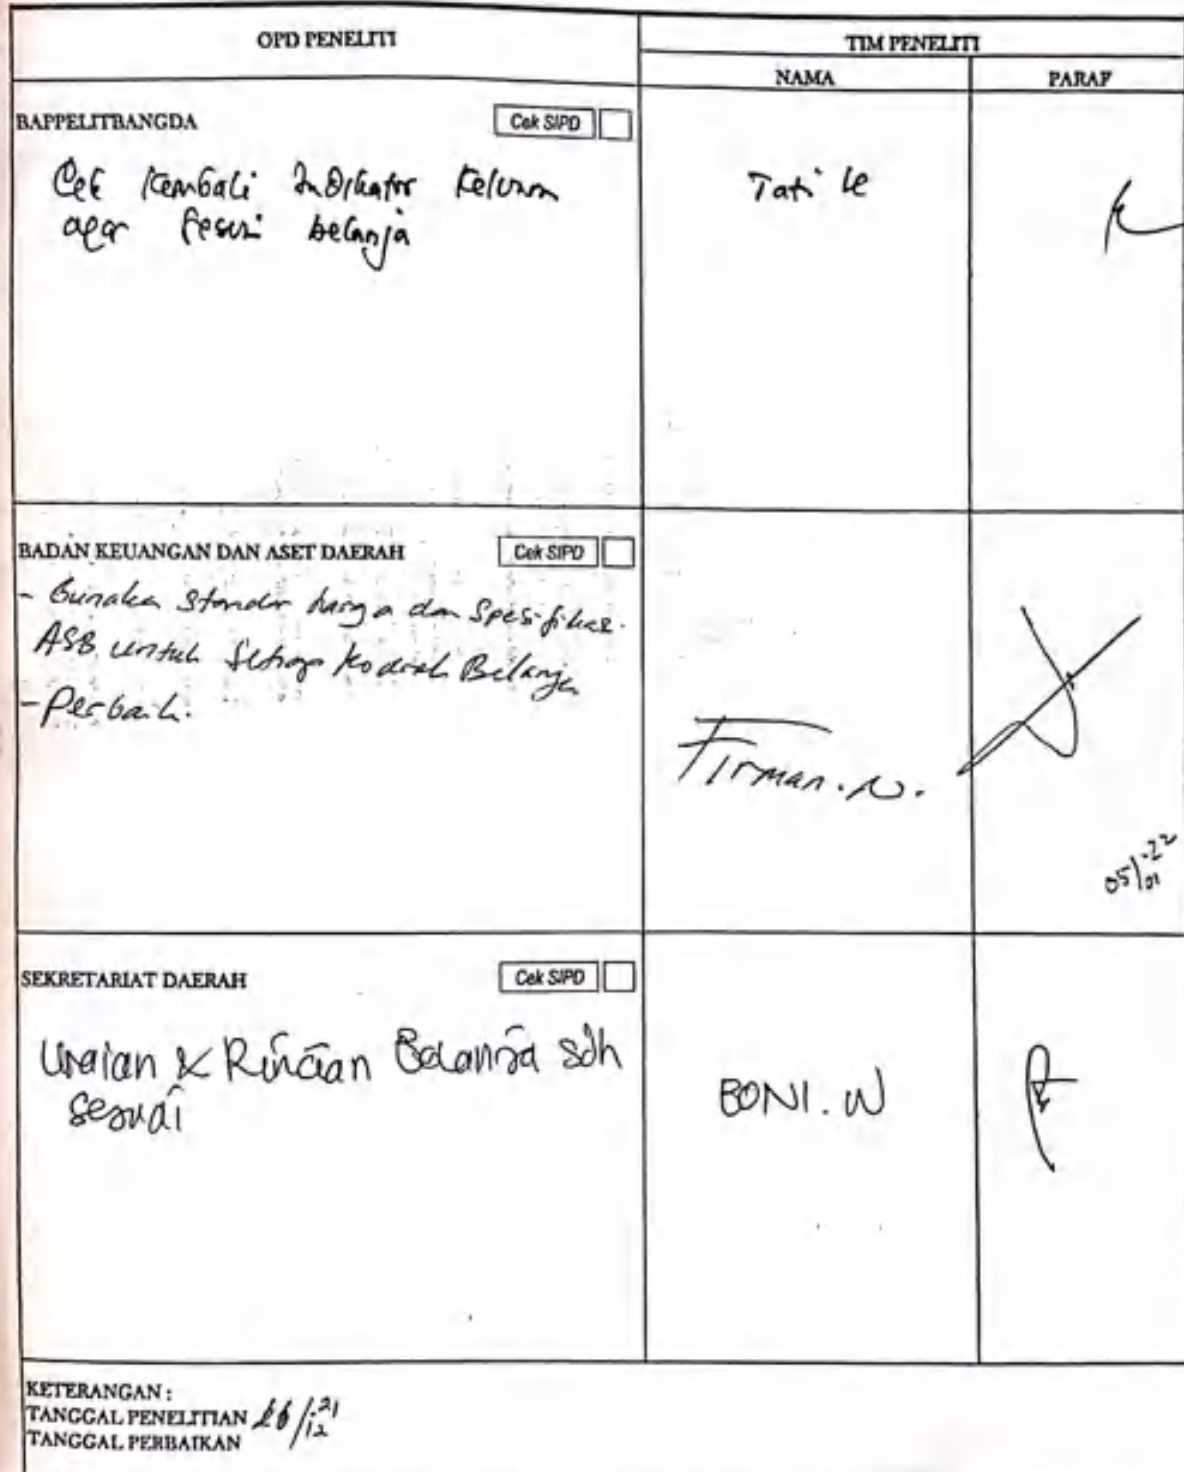 OPD PENELITI
TIM PENELITI
NAMA
PARAF
BAPPELITBANGDA
Cek SIPD
Cek Kembali Indikator
agar sesuai belanja
Tati
BADAN KEUANGAN DAN ASET DAERAH
Cek SIPD
- Gunakan standar harga dan Spesifikasi
ASB untuk Setiap Belanja
- Perbaiki.
Firman. N.
05/01 -22
SEKRETARIAT DAERAH
Cek SIPD
Uraian & Rincian Belanja sdh
sesuai
BONI. W
KETERANGAN :
TANGGAL PENELITIAN /12 -21
TANGGAL PERBAIKAN